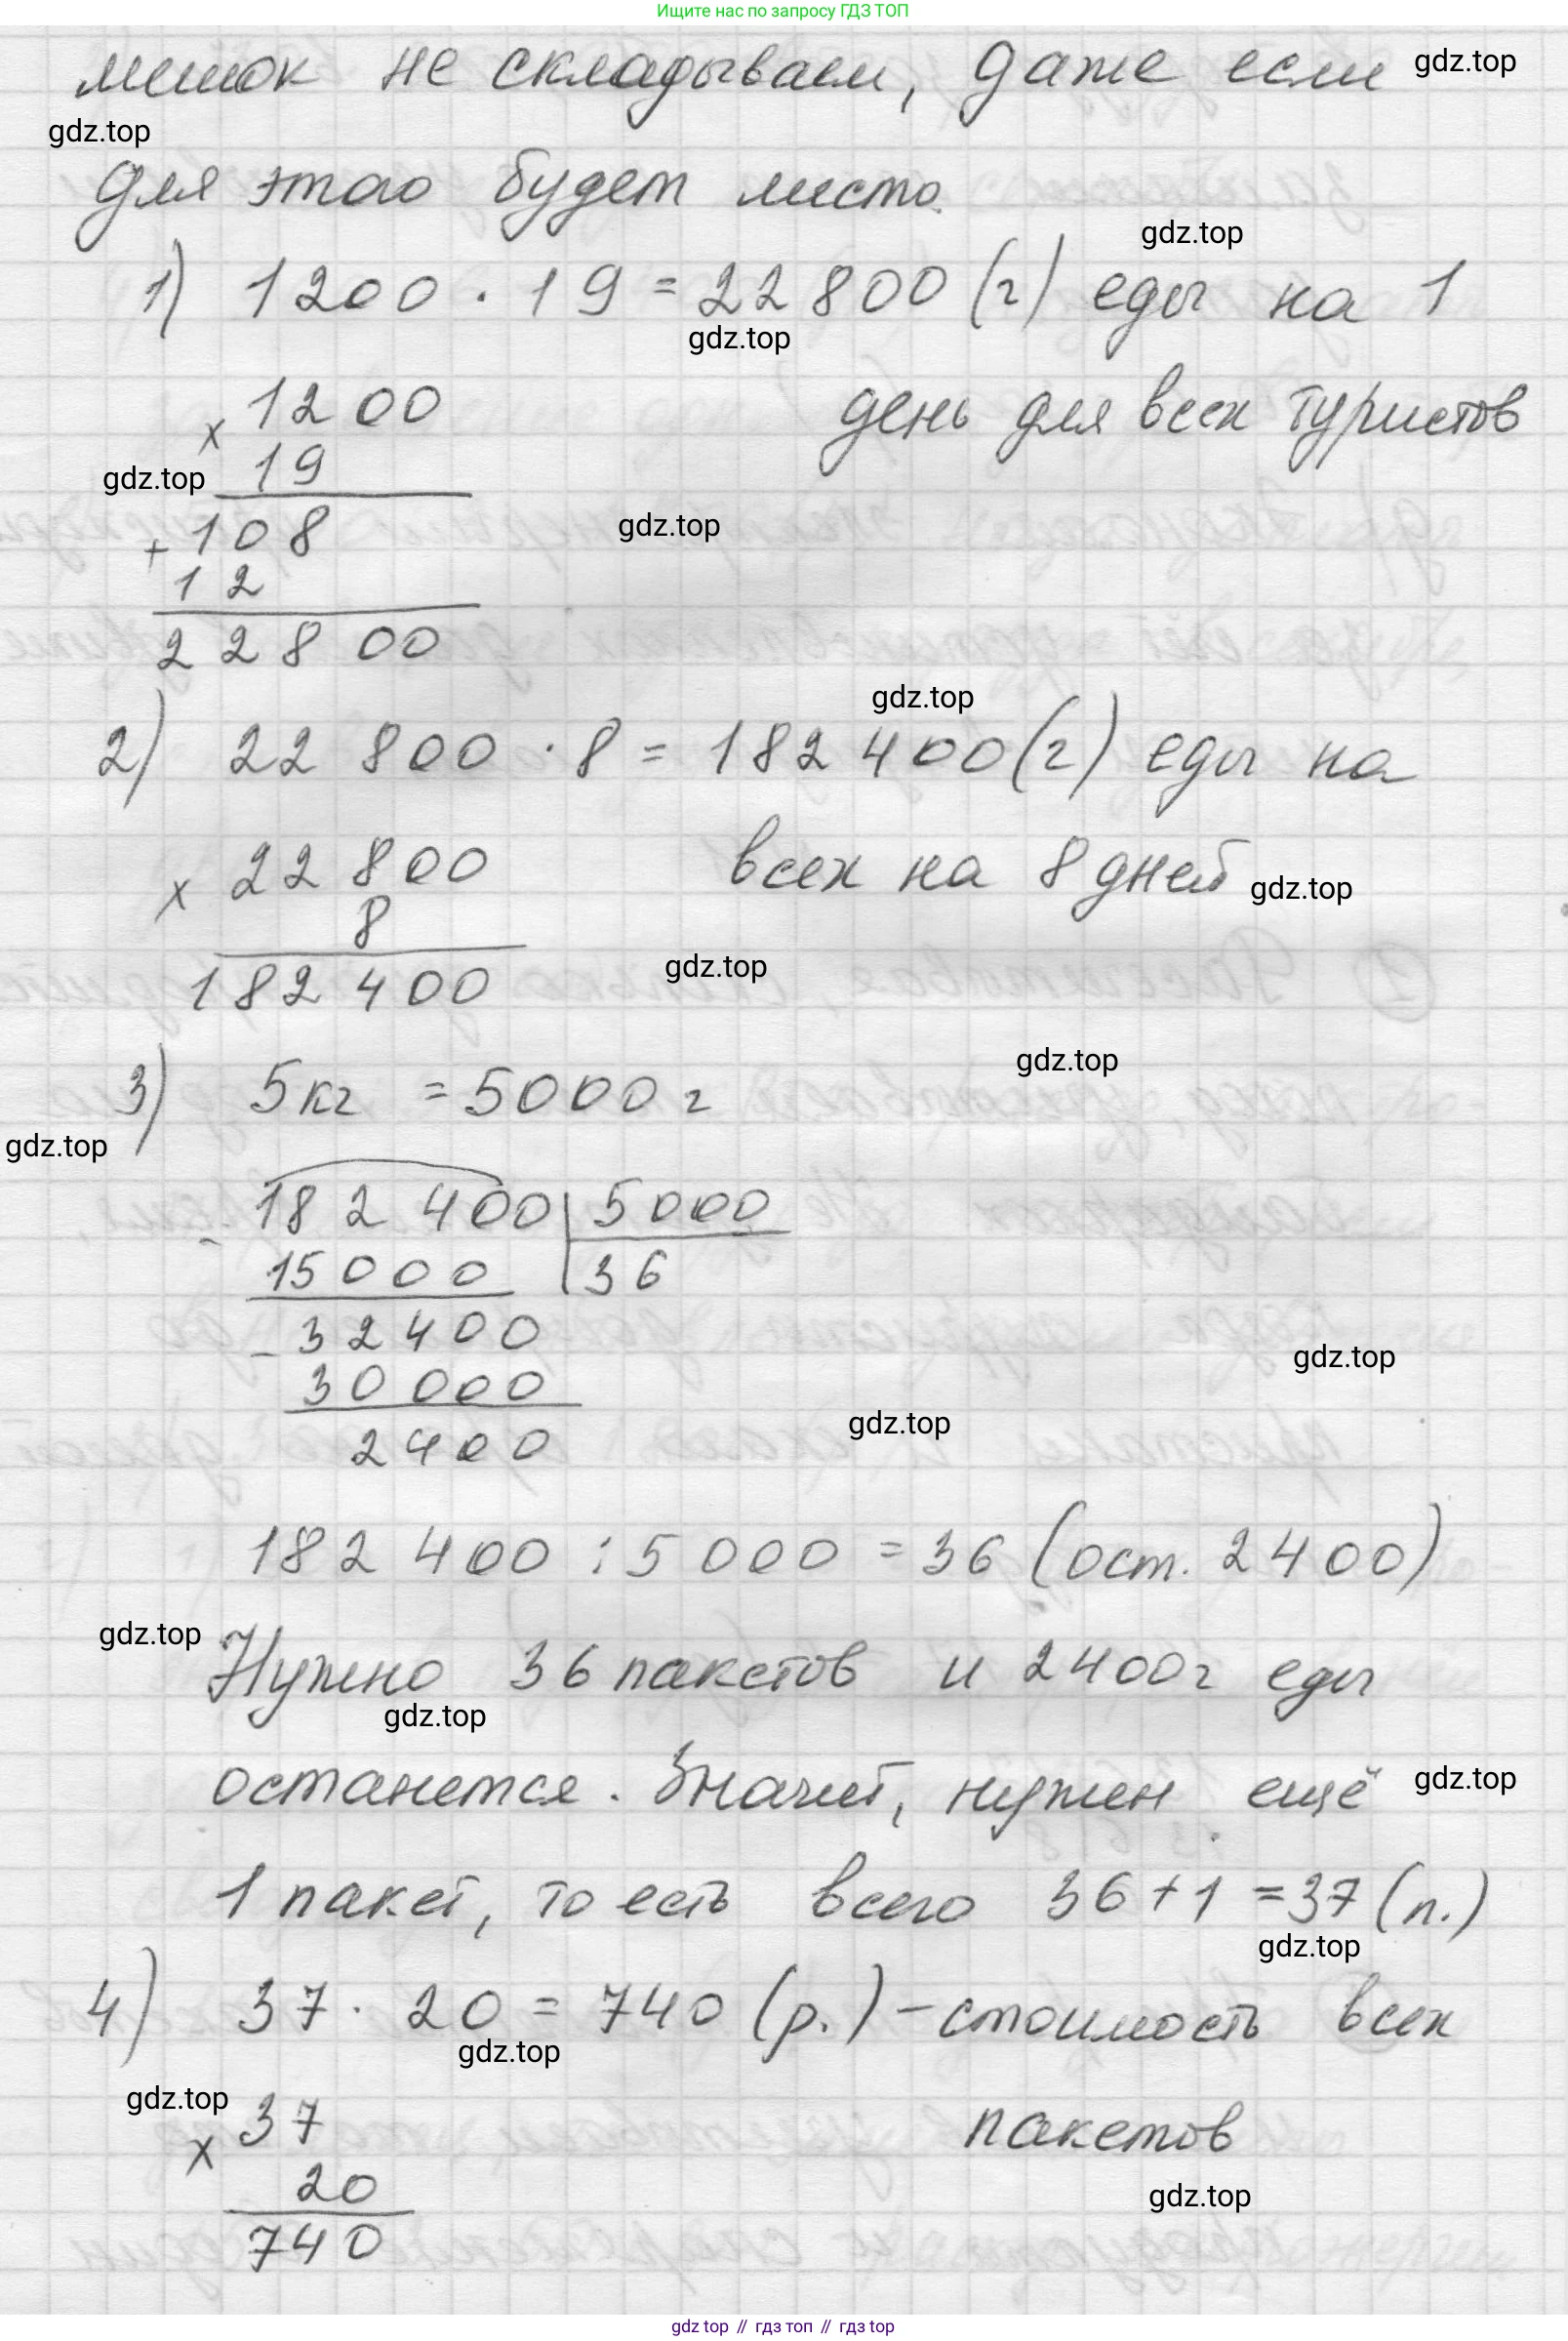 Ищите нас по запросу ГДЗ ТОП
мешок не складываем, даже если gdz.top
gdz.top
для этого будет место.
gdz.top
1) 1200 · 19 = 22 800 (г) еды на 1
gdz.top
× 1200 день для всех туристов
gdz.top 19
+ 108 gdz.top
12
22800
gdz.top
2) 22 800 · 8 = 182 400 (г) еды на
× 22 800 всех на 8 дней gdz.top
8
182 400 gdz.top
gdz.top
3) 5 кг = 5000 г
gdz.top
- 182 400 | 5000
15000 | 36
- 32400
gdz.top
30000
gdz.top
2400
182 400 : 5 000 = 36 (ост. 2400)
gdz.top
Нужно 36 пакетов и 2400 г еды
gdz.top
останется. Значит, нужен ещё gdz.top
1 пакет, то есть всего 36 + 1 = 37 (п.)
gdz.top
4) 37 · 20 = 740 (р.) – стоимость всех
gdz.top
gdz.top
× 37 пакетов
20
gdz.top
740
gdz top // гдз топ // gdz top